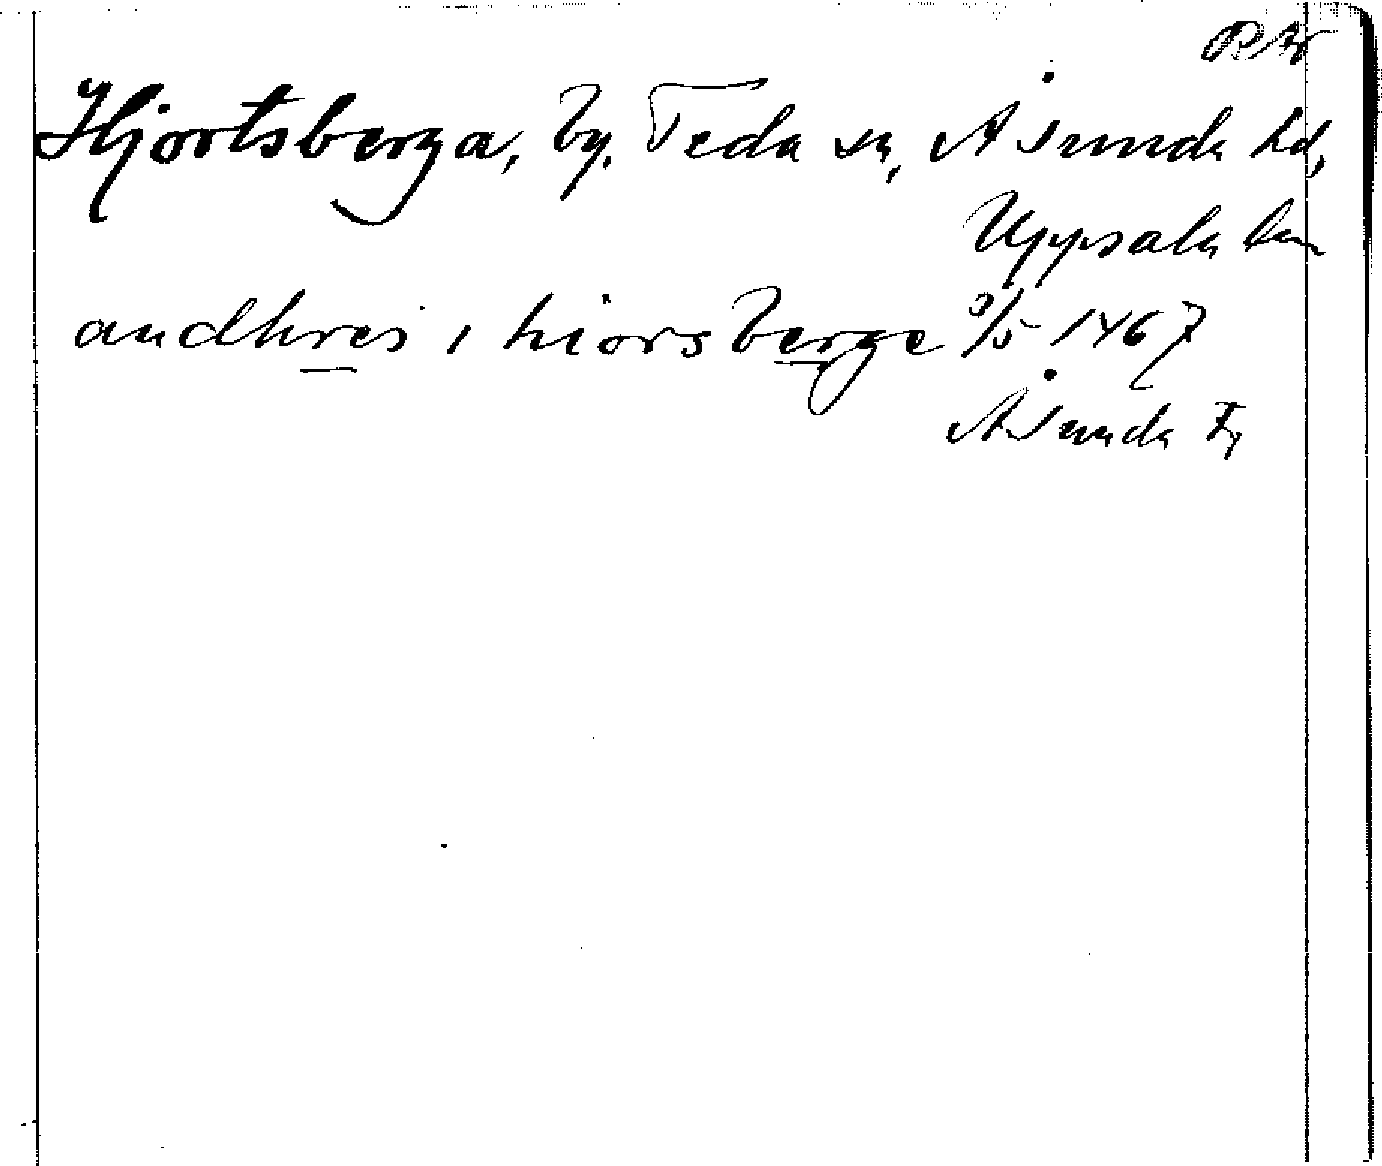 Hjortsberga, by, Teda sn, Åsunda hd,
Uppsala län
andhres i hiorsberge 3/5 1467
Åsunda